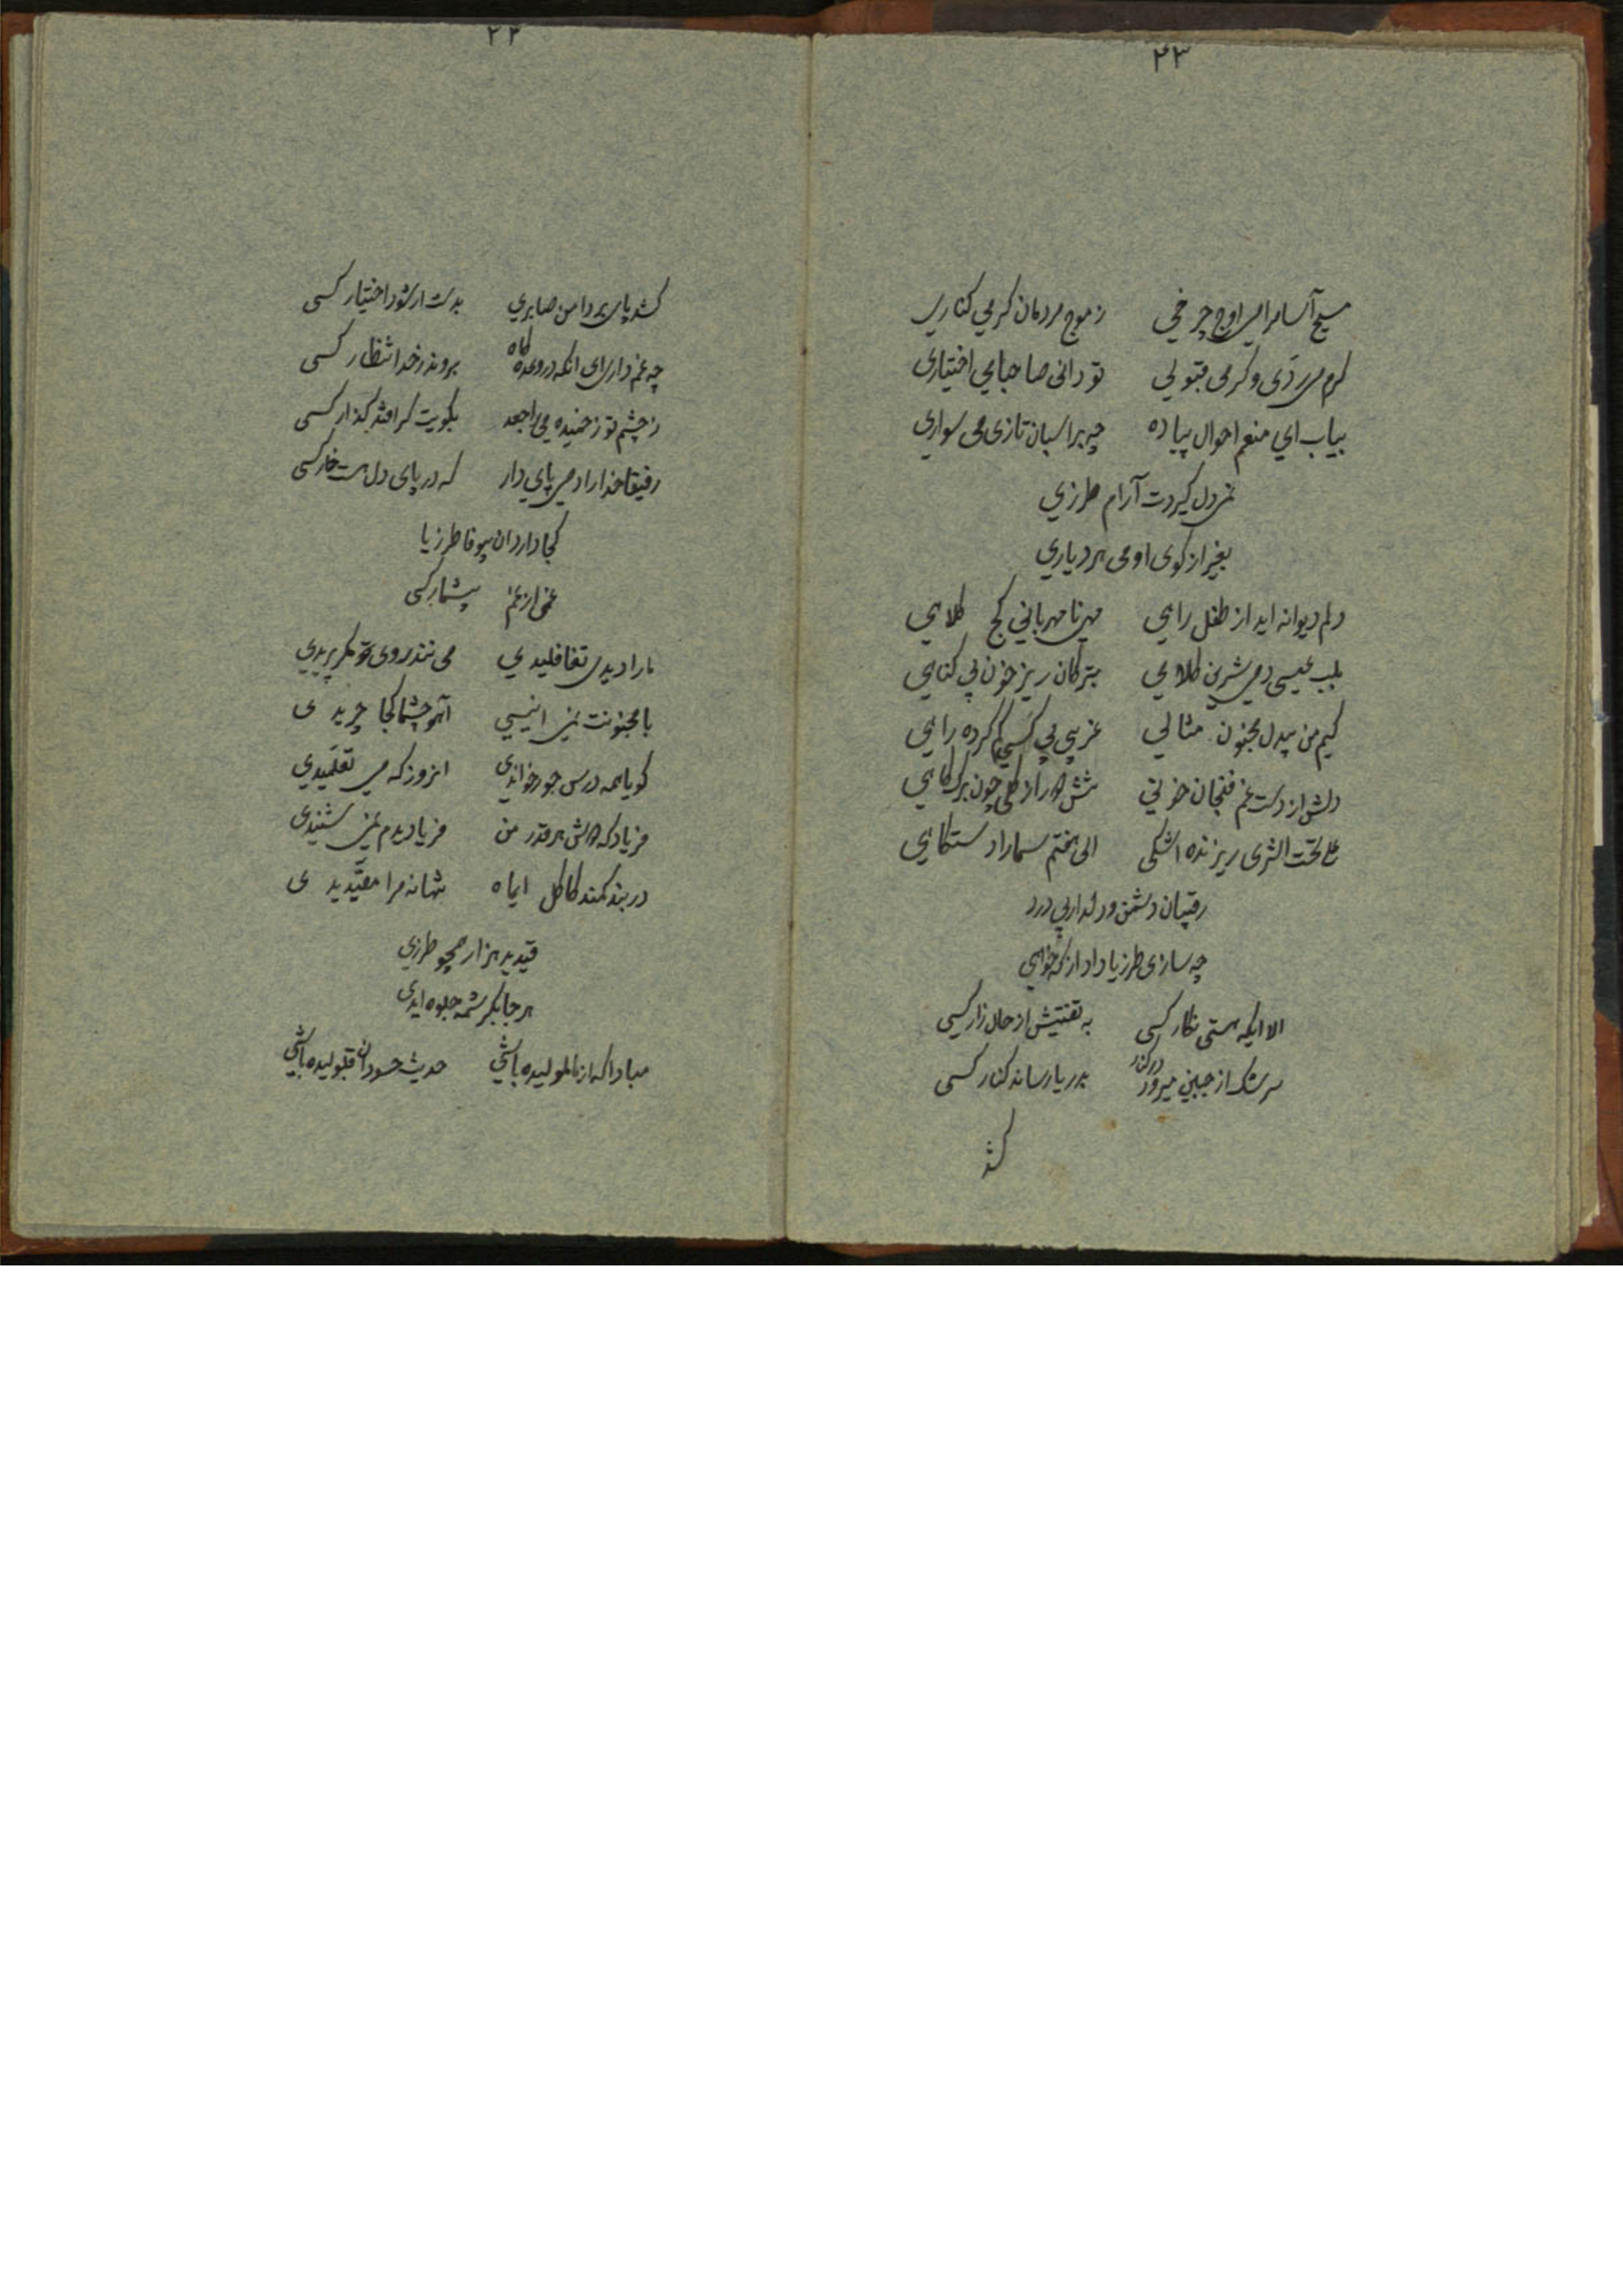 ۴۳
مسیح آسامرا می اوج چرخی ز موج مردمان کر می کناری
کرم می ردی و کر می قبولی تو دانی صاحبا بی اختیاری
بیاب ای منعم احوال پیاده چه بر اسبان تازی می سواری
دل کیردت آرام طرزی
بغیر از کوی او می هر دیاری
دلم دیوانه اید از طفل راهی مهی نامهربانی کج کلاهی
بلب عیسی دمی شیرین کلامی بترکان ریز خون بی کناهی
کیم من بیدل مجنون مثالی غریبی بی کسی کم کرده راهی
دلش از دست غم فنجان خونی تنش چون برک کاهی
تحت الثری ریزنده اشکی الی هفتم سما را
رقیبان دشمن و دلدار بی درد
چه سازی طرزیا داد از که خواهی
الا ایکه هستی نکار کسی به تفتیش از حال زار کسی
سرشک از جبین میرود در کنار بدریا رساند کنار کسی
کشد
۴۴
کشد پای بر دامن صابری بدست ار شود اختیار کسی
چه غم داری ای آنکه در وعده کاه برونذ ز خد انتظار کسی
ز چشم تو زخمیده می بکویت کر افتد کذار کسی
رفیقا خدا را دمی پای دار که در پای دل هست خار کسی
کجا دارد آن بیوفا طرزیا
غمی از غم بیشمار کسی
ما را دیدی تغافلیدی می روی تو مکر پریدی
با مجنونت انیسی آهو چشما کجا چریدی
کویا همه درس جور خواندی انروز که می تعلمیدی
فریاد که هر قدر من فریادیدم شنیدی
در بند کمند کاکل ایماه شهانه مرا مقیدیدی
قیدید هزار همچو طرزی
هر جا بکرشمه جلوه ایدی
مبادا که از ما ملولیده باشی حدیث حسودان قبولیده باشی